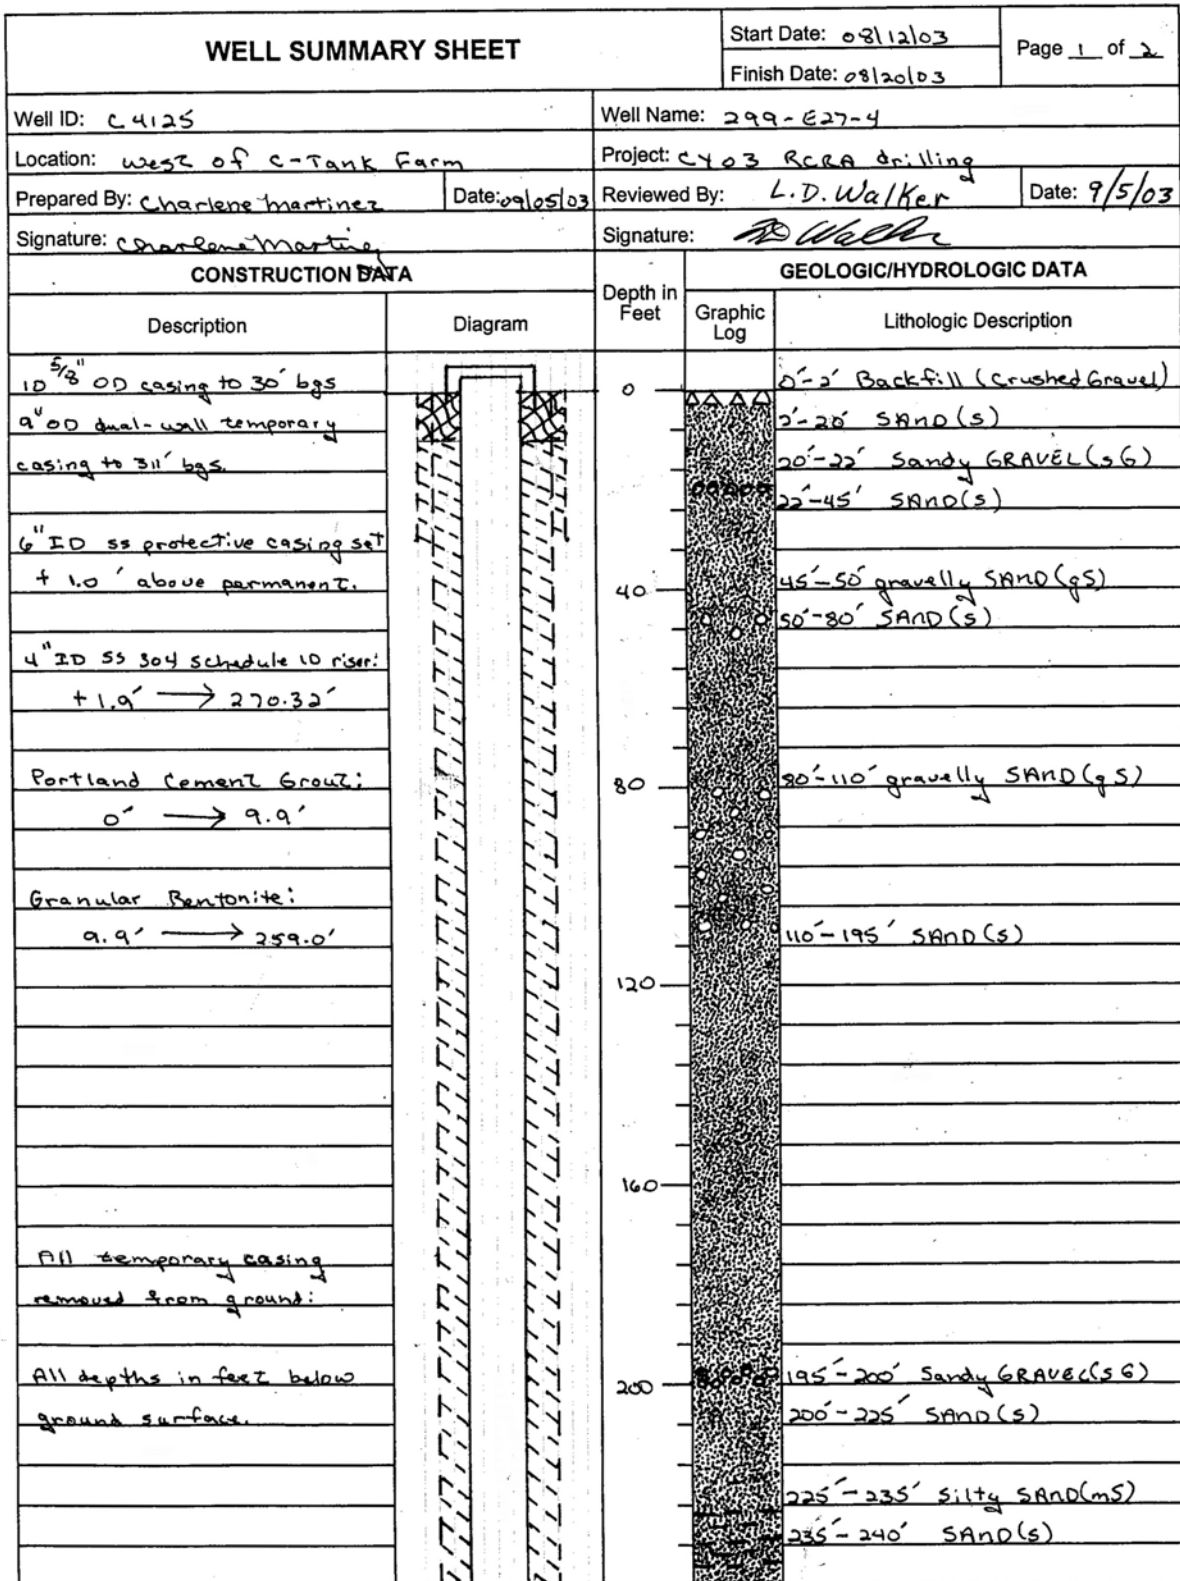 WELL SUMMARY SHEET
Start Date: 08/12/03
Finish Date: 08/20/03
Page 1 of 2
Well ID: C4125
Well Name: 299-E27-4
Location: West of C-Tank Farm
Project: CY03 RCRA drilling
Prepared By: Charlene Martinez
Date: 09/05/03
Reviewed By: L.D. Walker
Date: 9/5/03
Signature: Charlene Martinez
Signature: LD Walker
CONSTRUCTION DATA
Depth in Feet
GEOLOGIC/HYDROLOGIC DATA
Description
Diagram
Graphic Log
Lithologic Description
10 5/8" OD casing to 30' bgs
9" OD dual-wall temporary
casing to 311' bgs.
6" ID ss protective casing set
+ 1.0' above permanent.
4" ID SS 304 schedule 10 riser:
+1.9' → 270.32'
Portland Cement Grout:
0' → 9.9'
Granular Bentonite:
9.9' → 259.0'
All temporary casing
removed from ground:
All depths in feet below
ground surface.
0
40
80
120
160
200
0'-2' Backfill (Crushed Gravel)
2'-20' SAND (S)
20'-22' Sandy GRAVEL (sG)
22'-45' SAND (S)
45'-50' gravelly SAND (gS)
50'-80' SAND (S)
80'-110' gravelly SAND (gS)
110'-195' SAND (S)
195'-200' Sandy GRAVEL (sG)
200'-225' SAND (S)
225'-235' Silty SAND (mS)
235'-240' SAND (S)